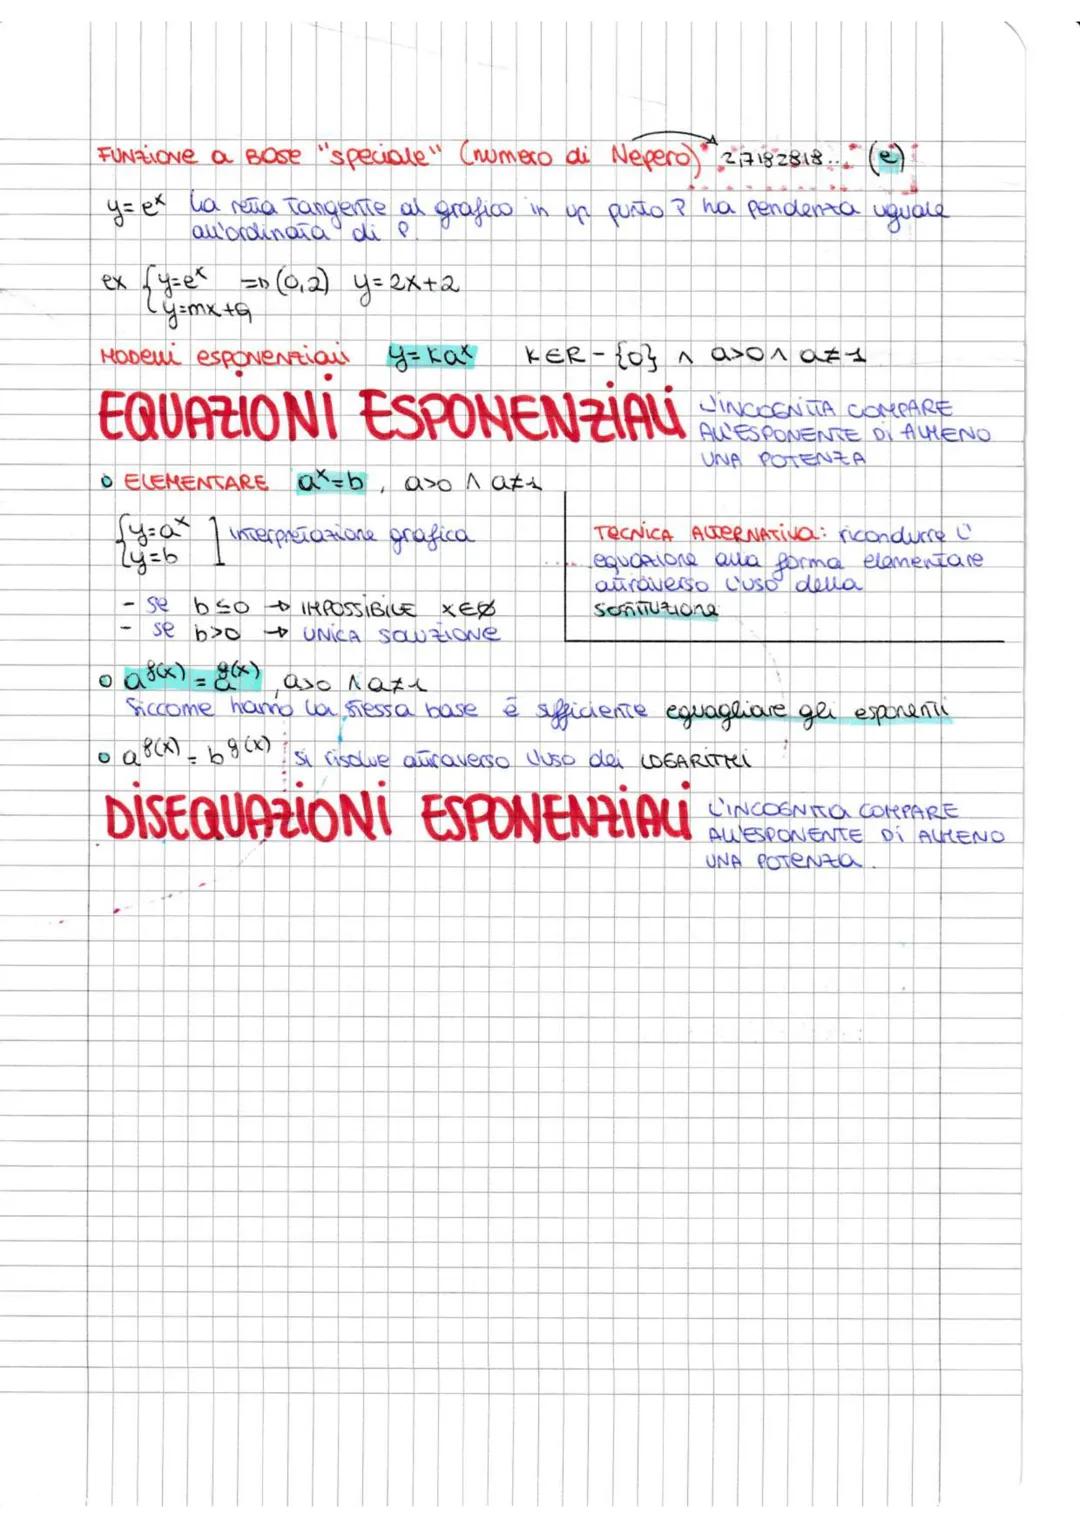 FUNZIONE a BASE "speciale" (numero di Nepero) 2,7182818... (e)
y=eˣ La retta tangente al grafico in un punto P ha pendenza uguale
all'ordinata di P.
ex {y=eˣ => (0,2) y=2x+2
{y=mx+q
MODELLI esponenziali y=kaˣ K∈R-{0} ∧ a>0 ∧ a≠1
EQUAZIONI ESPONENZIALI L'INCOGNITA COMPARE
ALL'ESPONENTE DI ALMENO
UNA POTENZA
o ELEMENTARE aˣ=b, a>0 ∧ a≠1
{y=aˣ ] interpretazione grafica
{y=b
- se b≤0 → IMPOSSIBILE x∈∅
- se b>0 → UNICA SOLUZIONE
TECNICA ALTERNATIVA: ricondurre l'
equazione alla forma elementare
attraverso l'uso della
sostituzione
o a^f(x) = a^g(x), a>0 ∧ a≠1
Siccome hanno la stessa base è sufficiente eguagliare gli esponenti
o a^f(x) = b^g(x) si risolve attraverso l'uso dei LOGARITMI
DISEQUAZIONI ESPONENZIALI L'INCOGNITA COMPARE
ALL'ESPONENTE DI ALMENO
UNA POTENZA.